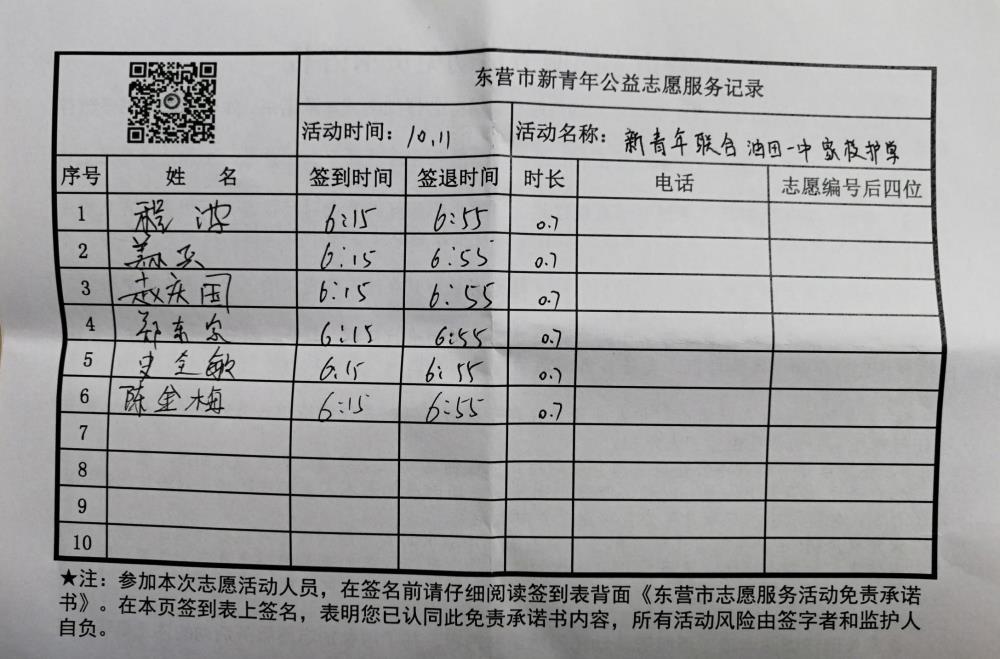 东营市新青年公益志愿服务记录
活动时间：10.11 活动名称：新青年联合油田一中家校护学
序号 姓 名 签到时间 签退时间 时长 电话 志愿编号后四位
1 程 6:15 6:55 0.7
2 6:15 6:55 0.7
3 赵庆国 6:15 6:55 0.7
4 郑东 6:15 6:55 0.7
5 史金敏 6.15 6:55 0.7
6 陈金梅 6:15 6:55 0.7
7
8
9
10
★注：参加本次志愿活动人员，在签名前请仔细阅读签到表背面《东营市志愿服务活动免责承诺
书》。在本页签到表上签名，表明您已认同此免责承诺书内容，所有活动风险由签字者和监护人
自负。